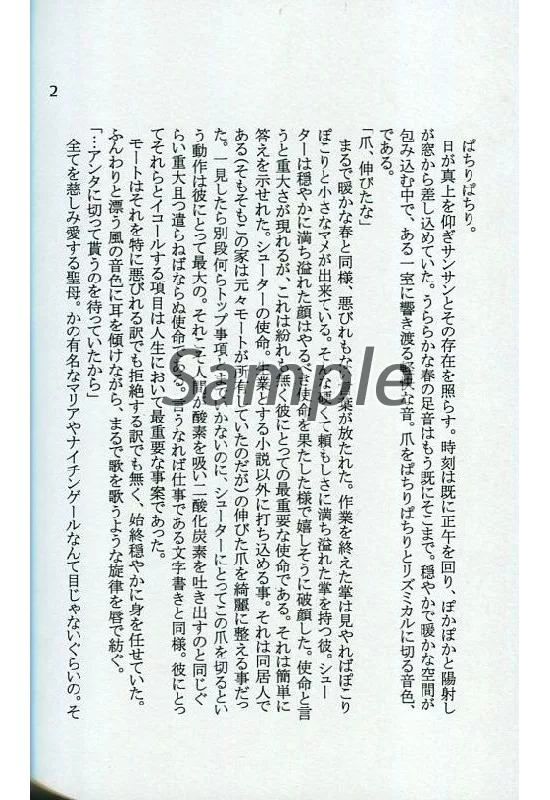 2
ぱちりぱちり。
日が真上を仰ぎサンサンとその存在を照らす。時刻は既に正午を回り、ぽかぽかと陽射し
が窓から差し込めていた。うららかな春の足音はもう既にそこまで。穏やかで暖かな空間が
包み込む中で、ある一室に響き渡る軽快な音。爪をぱちりぱちりとリズミカルに切る音色、
である。
「爪、伸びたな」
まるで暖かな春と同様、悪びれもな 言葉が放たれた。作業を終えた掌は見やればぽこり
ぽこりと小さなマメが出来ている。そんな硬くて頼もしさに満ち溢れた掌を持つ彼。シュー
ターは穏やかに満ち溢れた顔はやるべき使命を果たした様で嬉しそうに破顔した。使命と言
うと重大さが現れるが、これは紛れも無く彼にとっての最重要な使命である。それは簡単に
答えを示せれた。シューターの使命。生業とする小説以外に打ち込める事。それは同居人で
ある(そもそもこの家は元々モートが所有していたのだが)の伸びた爪を綺麗に整える事だっ
た。一見したら別段何らトップ事項と いかないのに、シューターにとってこの爪を切るとい
う動作は彼にとって最大の。それこそ人間が酸素を吸い二酸化炭素を吐き出すのと同じぐ
らい重大且つ遣らねばならぬ使命である。言うなれば仕事である文字書きと同様。彼にとっ
てそれらとイコールする項目は人生において最重要な事案であった。
モートはそれを特に悪びれる訳でも拒絶する訳でも無く、始終穏やかに身を任せていた。
ふんわりと漂う風の音色に耳を傾けながら、まるで歌を歌うような旋律を唇で紡ぐ。
「…アンタに切って貰うのを待っていたから」
全てを慈しみ愛する聖母。かの有名なマリアやナイチンゲールなんて目じゃないぐらいの。そ
Sample